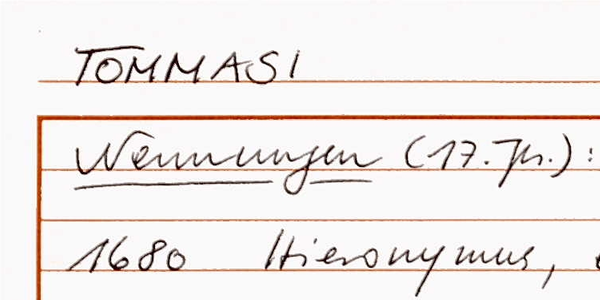 TOMMASI
Nennungen (17. Jh.):
1680 Hieronymus,